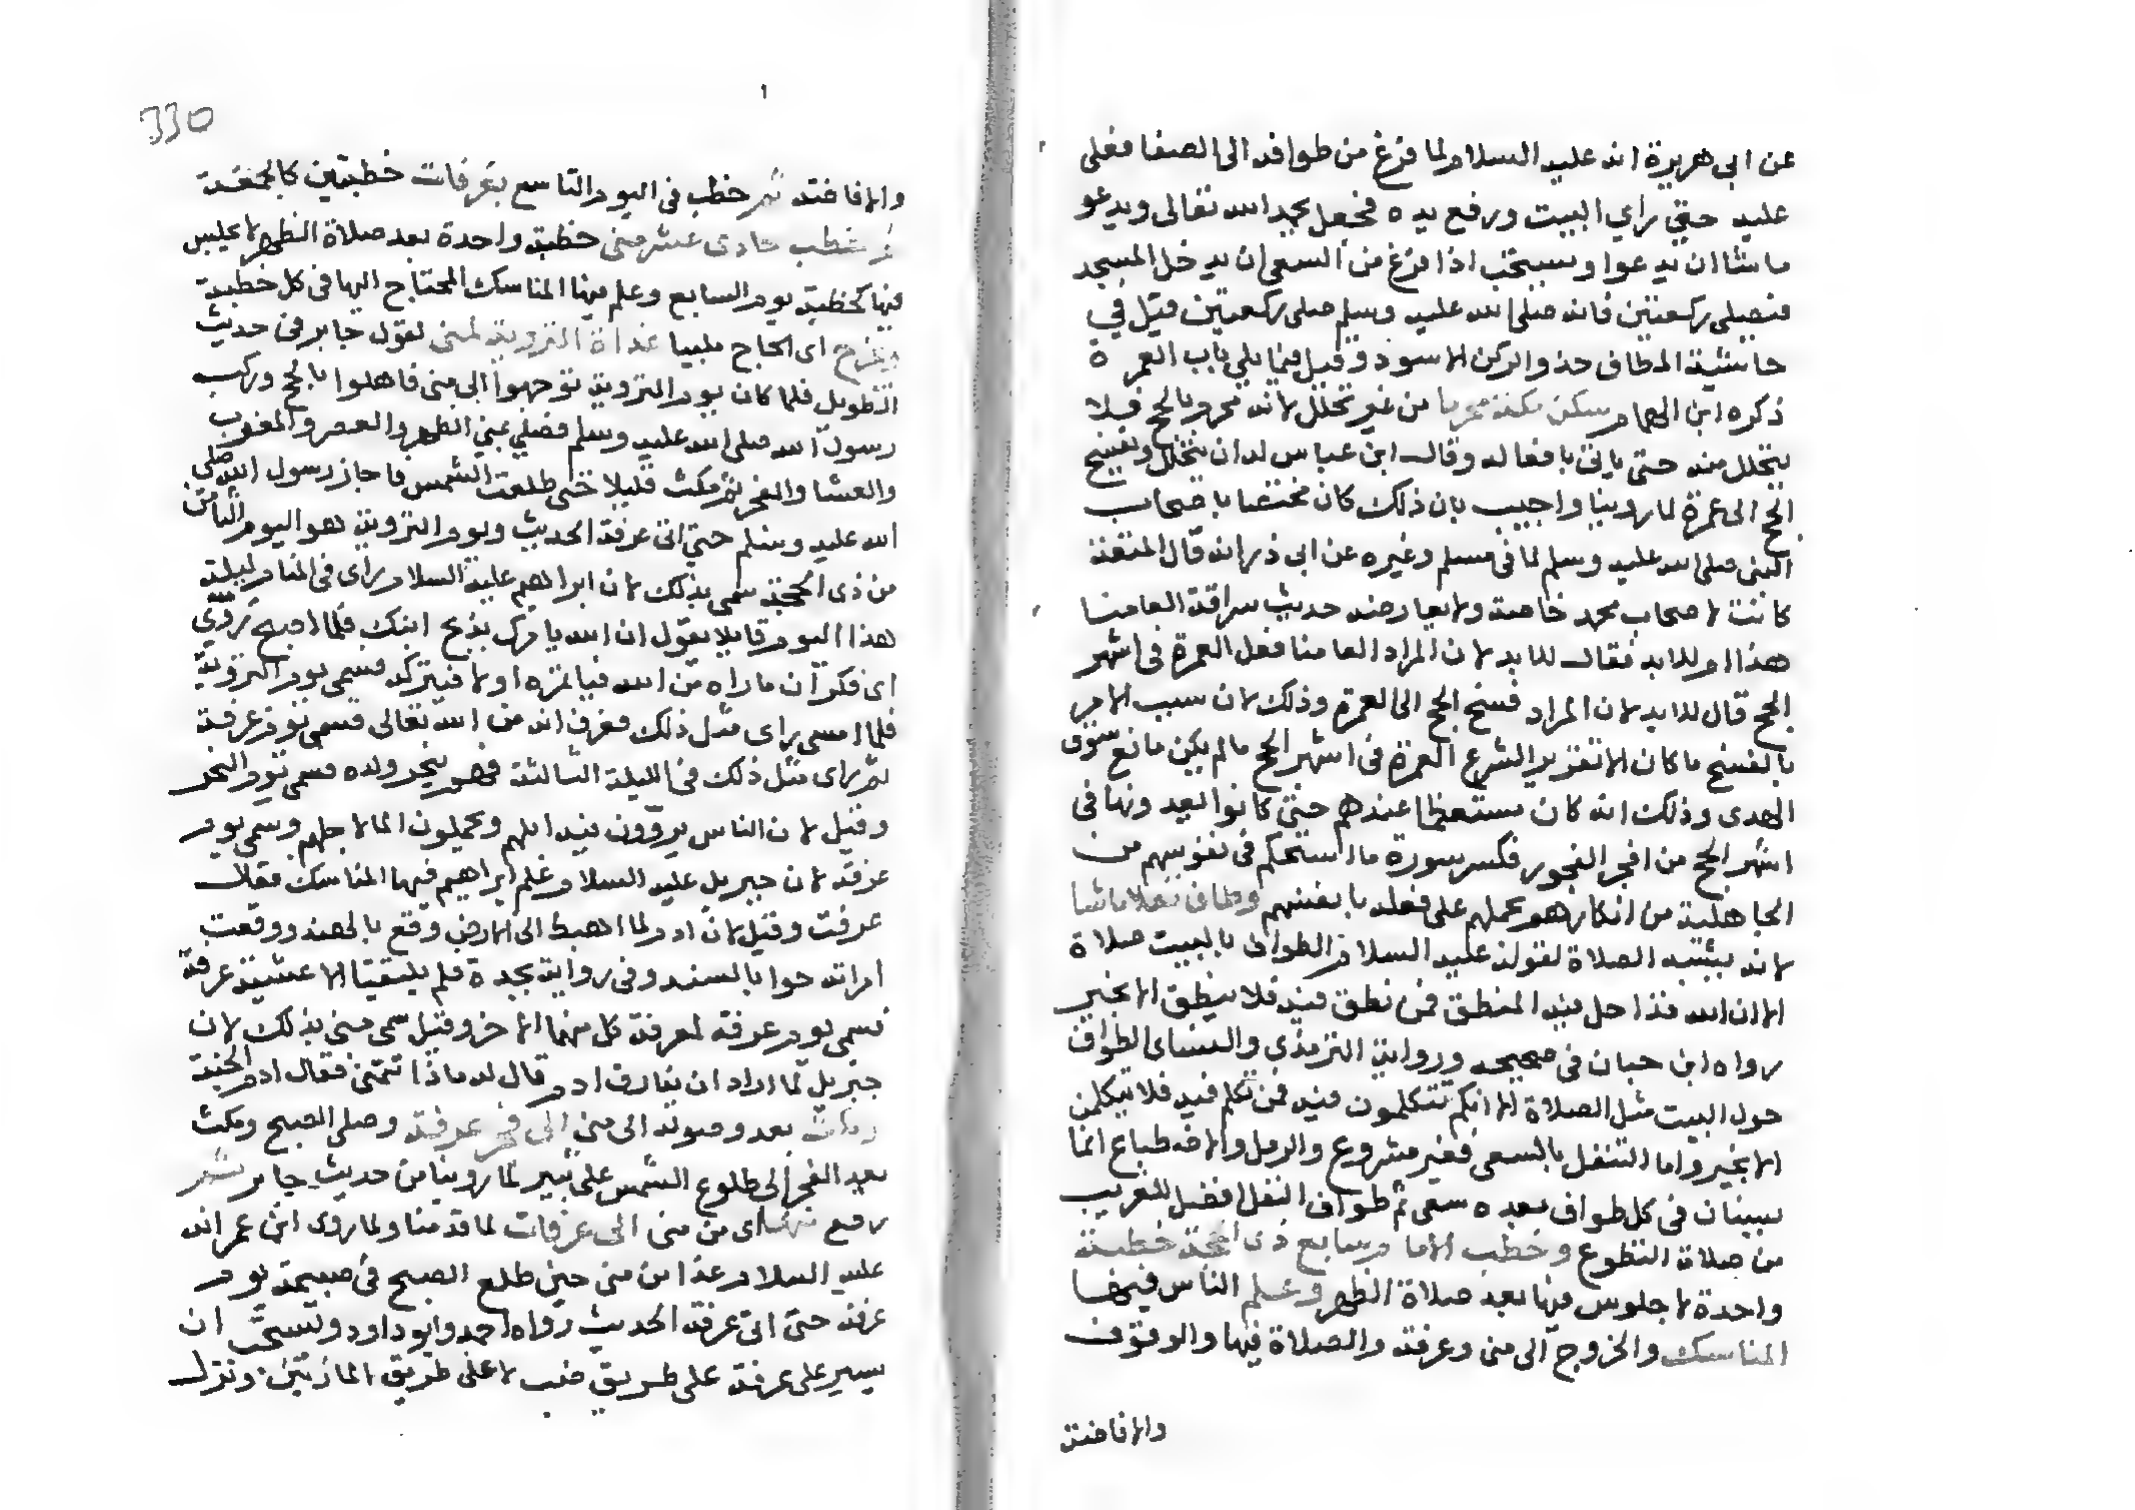 عن ابي هريرة انه عليه السلام لما فرغ من طوافه الى الصفا فعلى
عليه حتي راي البيت ورفع يده فجعل يحمد الله تعالى ويدعو
ما شا ان يدعوا ويستحب اذا فرغ من السعي ان يدخل المسجد
فيصلي ركعتين فانه صلى الله عليه وسلم صلى ركعتين قيل في
حاشية المطاف حذو الركن الاسود وقيل فيما يلي باب العمرة
ذكره ابن الهمام سكن مكة محرما من غير تحلل لانه محرم بالحج فلا
يتحلل منه حتى ياتي بافعاله وقال ابن عباس له ان يتحلل ويفسخ
الحج الى عمرة لما روينا واجيب بان ذلك كان مختصا باصحاب
النبي صلى الله عليه وسلم لما في مسلم وغيره عن ابي ذر انه قال المتعة
كانت لاصحاب محمد خاصة ولا يعارضه حديث سراقة العامنا
هذا ام للابد فقال للابد لان المراد العامنا فعل العمرة في اشهر
الحج قال للابد لان المراد فسخ الحج الى العمرة وذلك لان سبب الامر
بالفسخ ما كان الا تقرير الشرع العمرة في اشهر الحج ما لم يكن مانع سوق
الهدى وذلك انه كان مستعظما عندهم حتى كانوا يعدونها في
اشهر الحج من افجر الفجور فكسر سورة ما استحكم في نفوسهم من
الجاهلية من انكاره بحملهم على فعله بانفسهم وطاف نفلا ما شا
لانه يشبه الصلاة لقوله عليه السلام الطواف بالبيت صلاة
الا ان الله قد احل فيه المنطق فمن نطق فيه فلا ينطق الا بخير
رواه ابن حبان في صحيحه ورواية الترمذي والنساي الطواف
حول البيت مثل الصلاة الا انكم تتكلمون فيه فمن تكلم فيه فلا يتكلمن
الا بخير واما التنفل بالسعى فغير مشروع والرمل والاضطباع انما
يسنان في كل طواف بعده سعى ثم طواف النفل افضل للغريب
من صلاة التطوع وخطب الامام سابع ذي الحجة خطبة
واحدة لا جلوس فيها بعد صلاة الظهر وعلم الناس فيها
المناسك والخروج الى منى وعرفة والصلاة فيها والوقوف
والافاضة
330
والافاضة ثم خطب في اليوم التاسع بعرفات خطبتين كالجمعة
ثم خطب حادى عشر منى خطبة واحدة بعد صلاة الظهر لا يجلس
فيها كخطبة يوم السابع وعلم فيها المناسك المحتاج اليها في كل خطبة
ويخرج اى الحاج ملبيا غداة التروية لمنى لقول جابر في حديث
الطويل فلما كان يوم التروية توجهوا الى منى فاهلوا بالحج وركب
رسول الله صلى الله عليه وسلم فصلي بمنى الظهر والعصر والمغرب
والعشا والفجر ثم مكث قليلا حتى طلعت الشمس فاجاز رسول الله صلى
الله عليه وسلم حتي اتى عرفة الحديث ويوم التروية هو اليوم الثامن
من ذى الحجة سمى بذلك لان ابراهيم عليه السلام راى في المنام ليلة
هذا اليوم قايلا يقول ان الله يامرك بذبح ابنك فلما اصبح تروى
اى فكر ان ما راه من الله فياتمره او لا فيتركه فسمى يوم التروية
فلما امسى راى مثل ذلك فعرف انه من الله تعالى فسمى يوم عرفة
ثم راى مثل ذلك في الليلة الثالثة فهم بنحر ولده فسمى يوم النحر
وقيل لان الناس يروون فيه ابلهم ويحملون الما لاجلهم وسمى يوم
عرفة لان جبريل عليه السلام علم ابراهيم فيها المناسك فقال
عرفت وقيل لان ادم لما اهبط الى الارض وقع بالهند ووقعت
امراته حوا بالسند وفي رواية بجدة فلم يلتقيا الا عشية عرفة
فسمى يوم عرفة لمعرفة كل منهما الاخر وقيل سمى منى بذلك لان
جبريل لما اراد ان يفارق ادم قال له ماذا تتمنى فقال ادم الجنة
وبات بعد وصوله الى منى الى فجر عرفة وصلى الصبح ومكث
بعد الفجر الى طلوع الشمس على ثبير لما روينا من حديث جابر ثم
رفع منها اى من منى الى عرفات لما قدمنا ولما روى ابن عمر انه
عليه السلام غدا من منى حين طلع الصبح في صبيحة يوم
عرفة حتى اتى عرفة الحديث رواه احمد وابو داود ويستحب ان
يسير على عرفة على طريق ضب لا على طريق المازمين ونزل